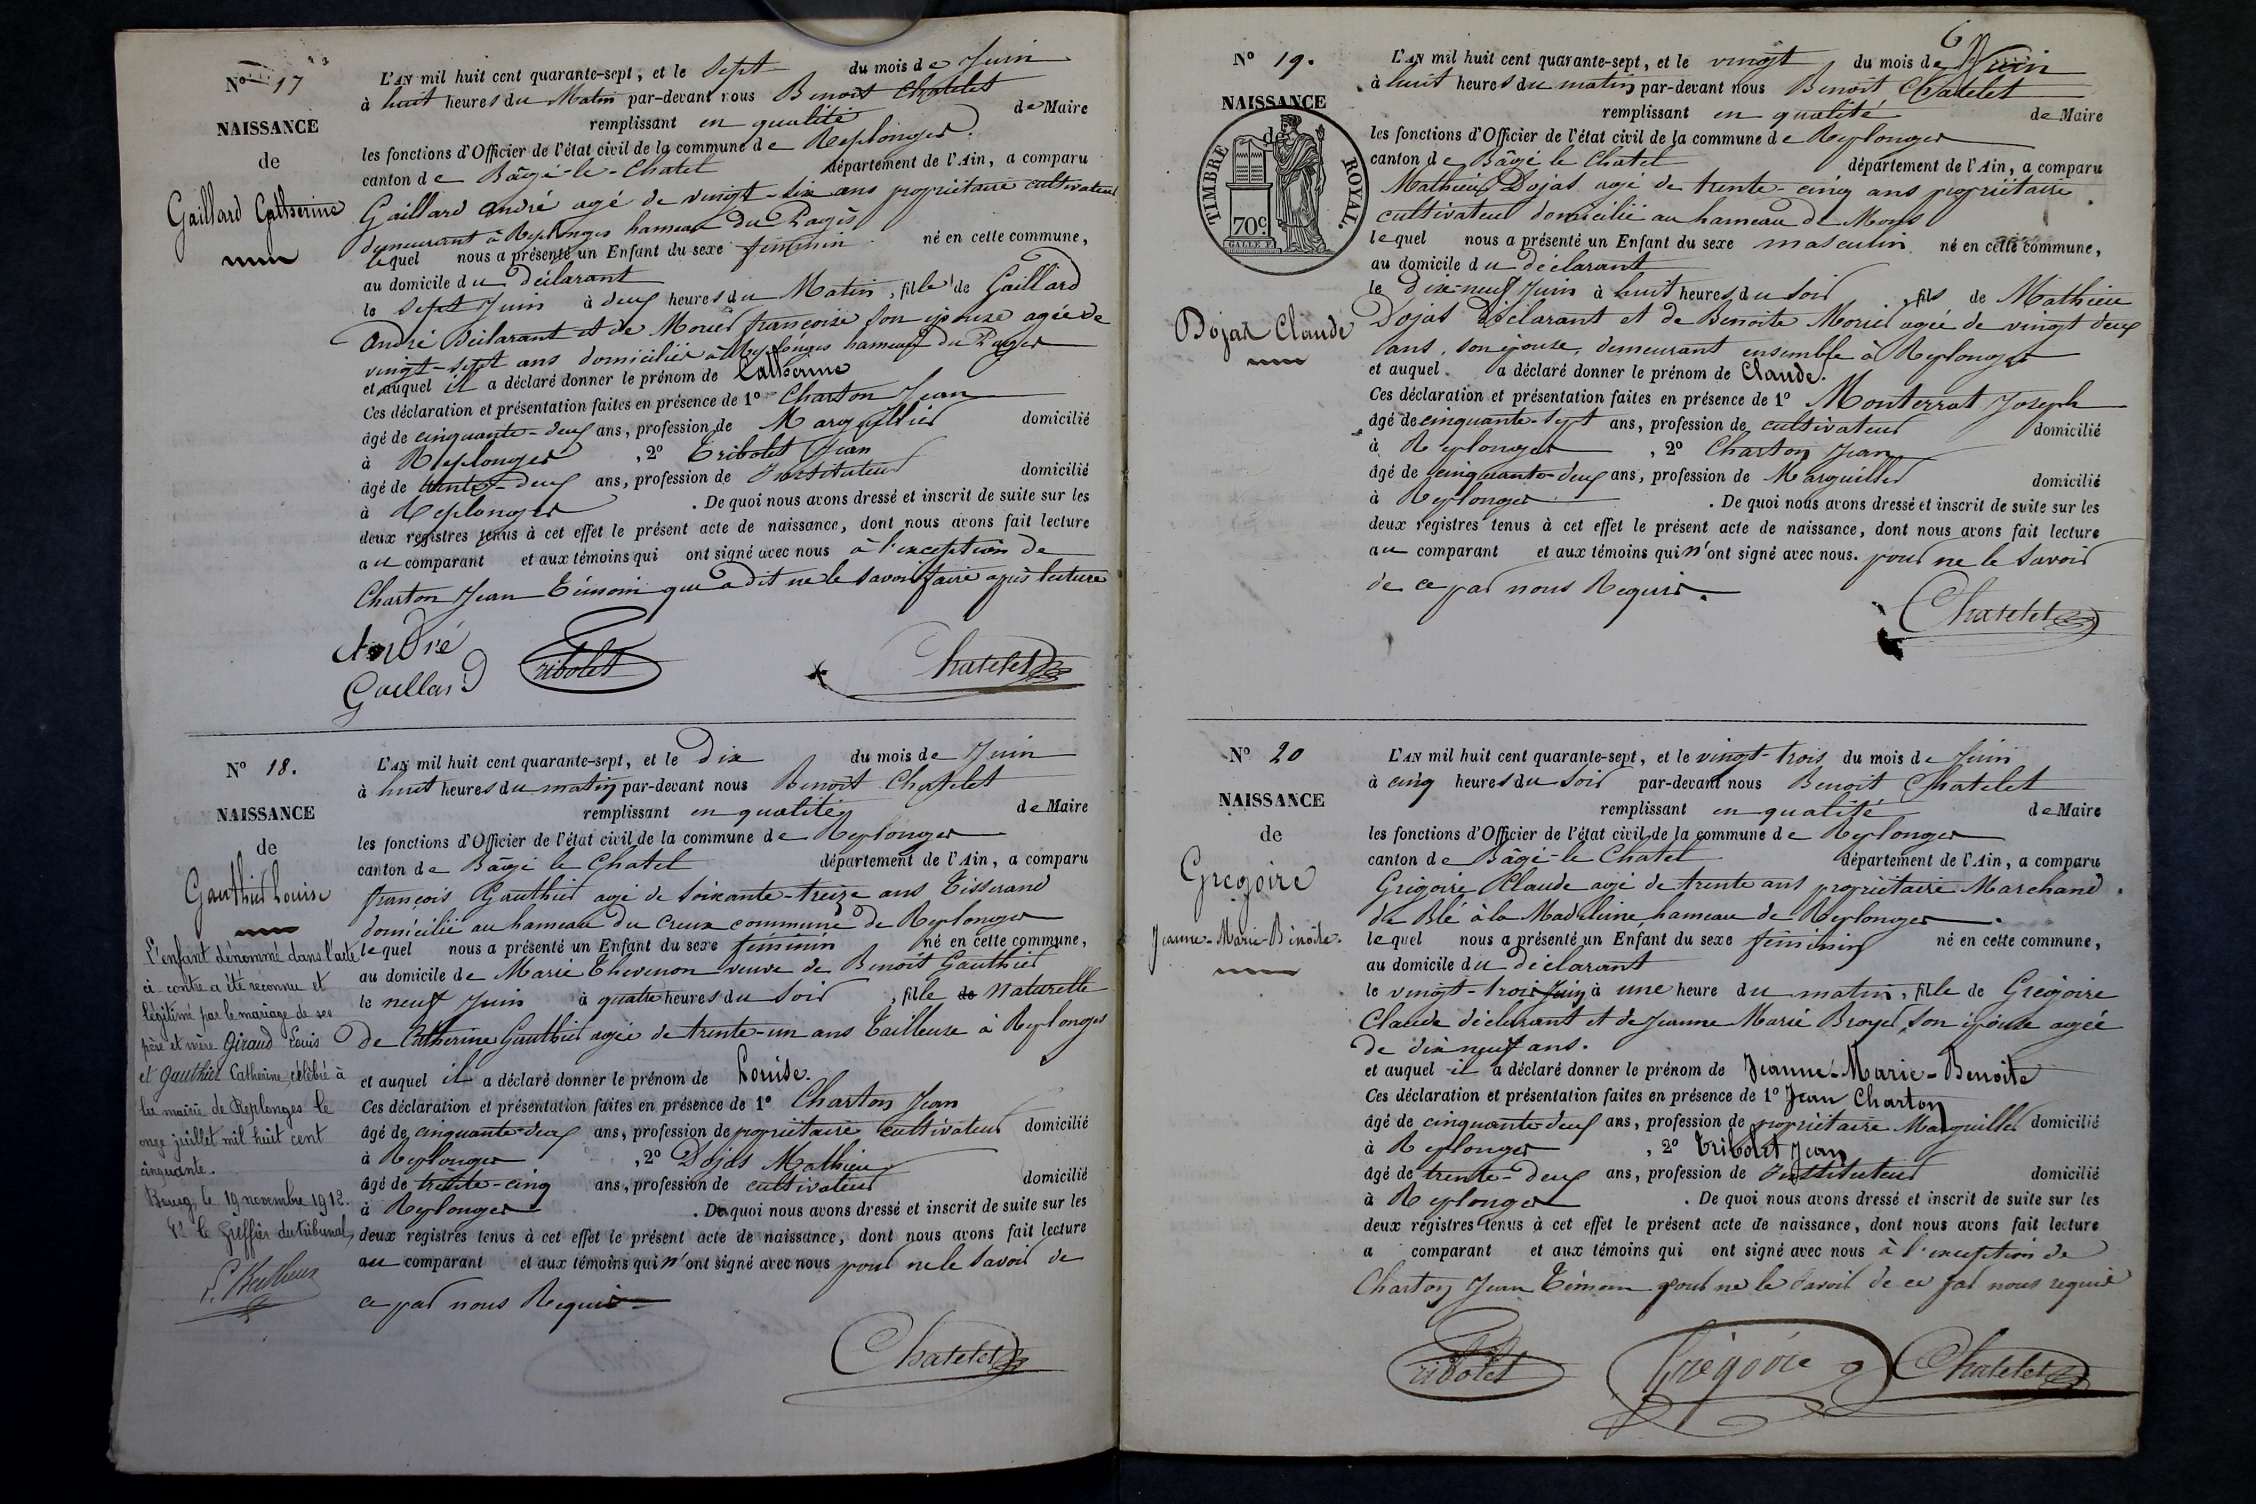 Nº 17
NAISSANCE
de
Gaillard Catherine
L'AN mil huit cent quarante-sept, et le sept du mois de Juin
à huit heures du Matin par-devant nous Benoit Chatelet
remplissant en qualité de Maire
les fonctions d'Officier de l'état civil de la commune de Replonges.
canton de Bâgé-le-Chatel département de l'Ain, a comparu
Gaillard André agé de vingt-six ans propriétaire cultivateur
demeurant à Replonges hameau du
lequel nous a présenté un Enfant du sexe féminin né en cette commune,
au domicile du déclarant
le sept Juin à deux heures du Matin, fille de Gaillard
André Déclarant et de Morier françoise son épouse agée de
vingt-sept ans domiciliés à Replonges hameau du
et auquel il a déclaré donner le prénom de Catherine
Ces déclaration et présentation faites en présence de 1º Charton Jean
âgé de cinquante-deux ans, profession de Marguillier domicilié
à Replonges, 2º Tribolet Jean
âgé de trente-deux ans, profession de Instituteur domicilié
à Replonges. De quoi nous avons dressé et inscrit de suite sur les
deux registres tenus à cet effet le présent acte de naissance, dont nous avons fait lecture
au comparant et aux témoins qui ont signé avec nous à l'exception de
Charton Jean Témoin qui a dit ne le savoir faire après lecture
André
Gaillard
Tribolet
Chatelet
Nº 18.
NAISSANCE
de
Gauthier Louise
L'enfant dénommé dans l'acte
ci-contre a été reconnu et
légitimé par le mariage de ses
père et mère Giraud Louis
et Gauthier Catherine, célébré à
la mairie de Replonges le
onze juillet mil huit cent
cinquante.
Bourg, le 19 novembre 1912.
Pr le Greffier du tribunal,
L'AN mil huit cent quarante-sept, et le Dix du mois de Juin
à huit heures du matin par-devant nous Benoit Chatelet
remplissant en qualité de Maire
les fonctions d'Officier de l'état civil de la commune de Replonges
canton de Bâgé le Chatel département de l'Ain, a comparu
françois Gauthier agé de soixante-treize ans Tisserand
domicilié au hameau du Creux commune de Replonges
lequel nous a présenté un Enfant du sexe féminin né en cette commune,
au domicile de Marie Thevenon veuve de Benoit Gauthier
le neuf Juin à quatre heures du soir, fille de Naturelle
De Catherine Gauthier agée de trente-un ans Tailleuse à Replonges
et auquel il a déclaré donner le prénom de Louise.
Ces déclaration et présentation faites en présence de 1º Charton Jean
âgé de cinquante-deux ans, profession de propriétaire cultivateur domicilié
à Replonges, 2º Dojat Mathieu
âgé de trente-cinq ans, profession de cultivateur domicilié
à Replonges. De quoi nous avons dressé et inscrit de suite sur les
deux registres tenus à cet effet le présent acte de naissance, dont nous avons fait lecture
au comparant et aux témoins qui n'ont signé avec nous pour ne le savoir de
ce par nous Requis
Chatelet
6
Nº 19.
NAISSANCE
de
TIMBRE ROYAL.
70c
Dojat Claude
L'AN mil huit cent quarante-sept, et le vingt du mois de Juin
à huit heures du matin par-devant nous Benoit Chatelet
remplissant en qualité de Maire
les fonctions d'Officier de l'état civil de la commune de Replonges
canton de Bâgé le Chatel département de l'Ain, a comparu
Mathieu Dojat agé de trente-cinq ans propriétaire
cultivateur domicilié au hameau de Mons
lequel nous a présenté un Enfant du sexe masculin né en cette commune,
au domicile du déclarant
le dix-neuf Juin à huit heures du soir, fils de Mathieu
Dojat Déclarant et de Benoite Morier agée de vingt deux
ans, son épouse, demeurant ensemble à Replonges
et auquel a déclaré donner le prénom de Claude.
Ces déclaration et présentation faites en présence de 1º Monterrat Joseph
âgé de cinquante-sept ans, profession de cultivateur domicilié
à Replonges, 2º Charton Jean
âgé de cinquante-deux ans, profession de Marguillier domicilié
à Replonges. De quoi nous avons dressé et inscrit de suite sur les
deux registres tenus à cet effet le présent acte de naissance, dont nous avons fait lecture
au comparant et aux témoins qui n'ont signé avec nous. pour ne le savoir
de ce par nous Requis.
Chatelet
Nº 20
NAISSANCE
de
Gregoire
Jeanne-Marie-Benoite.
L'AN mil huit cent quarante-sept, et le vingt-trois du mois de Juin
à cinq heures du soir par-devant nous Benoit Chatelet
remplissant en qualité de Maire
les fonctions d'Officier de l'état civil de la commune de Replonges
canton de Bâgé-le Chatel département de l'Ain, a comparu
Grégoire Claude agé de trente ans propriétaire Marchand
de Blé à la Madeleine hameau de Replonges.
lequel nous a présenté un Enfant du sexe féminin né en cette commune,
au domicile du déclarant
le vingt-trois Juin à une heure du matin, fille de Grégoire
Claude déclarant et de Jeanne Marie Broyer son épouse agée
de dix neuf ans.
et auquel il a déclaré donner le prénom de Jeanne-Marie-Benoite
Ces déclaration et présentation faites en présence de 1º Jean Charton
âgé de cinquante-deux ans, profession de propriétaire Marguillier domicilié
à Replonges, 2º Tribolet Jean
âgé de trente-deux ans, profession de Instituteur domicilié
à Replonges. De quoi nous avons dressé et inscrit de suite sur les
deux registres tenus à cet effet le présent acte de naissance, dont nous avons fait lecture
a comparant et aux témoins qui ont signé avec nous à l'exception de
Charton Jean Témoin pour ne le savoir de ce par nous requis
Tribolet
Grégoire
Chatelet